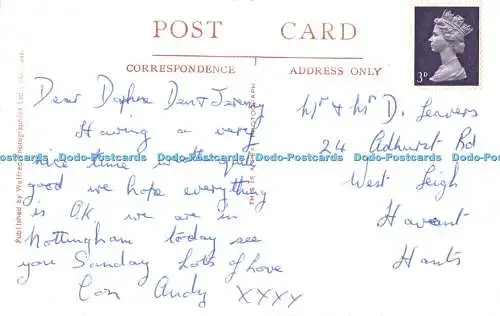 POST CARD
CORRESPONDENCE
ADDRESS ONLY
3D
Dear Daphne Den & Jeremy
Having a very
nice time is the
good we hope everything
is O.K. we are in
Nottingham today see
you Sunday Lots of Love
Con Andy XXXX
Mr & Mrs D. Leavers
24 Adhurst Rd
West Leigh
Havant
Hants
Published by Walfred Photographics Ltd.,
PHOTOGRAPH
Dodo-Postcards Dodo-Postcards Dodo-Postcards Dodo-Postcards Dodo-Postcards Dodo-Postcards